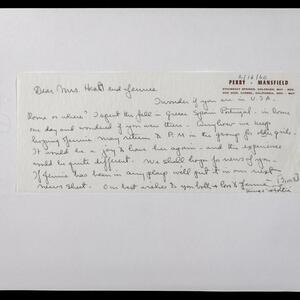 2/16/60
PERRY - MANSFIELD
STEAMBOAT SPRINGS, COLORADO, MAY - NOV.
Dear Mrs. and Jennie
I wonder if you are in U.S.A.
Rome or where? I spent the fall in Greece Spain Portugal - in Rome
one day and wondered if you were there. Anyhow we keep
hoping Jennie may return to P.M in the group for older girls.
It would be a joy to have her again - and the experience
would be quite different. We shall hope for news of you.
If Jennie has been in any plays we'll put it in our next
news sheet. Our best wishes to you both & love to Jennie